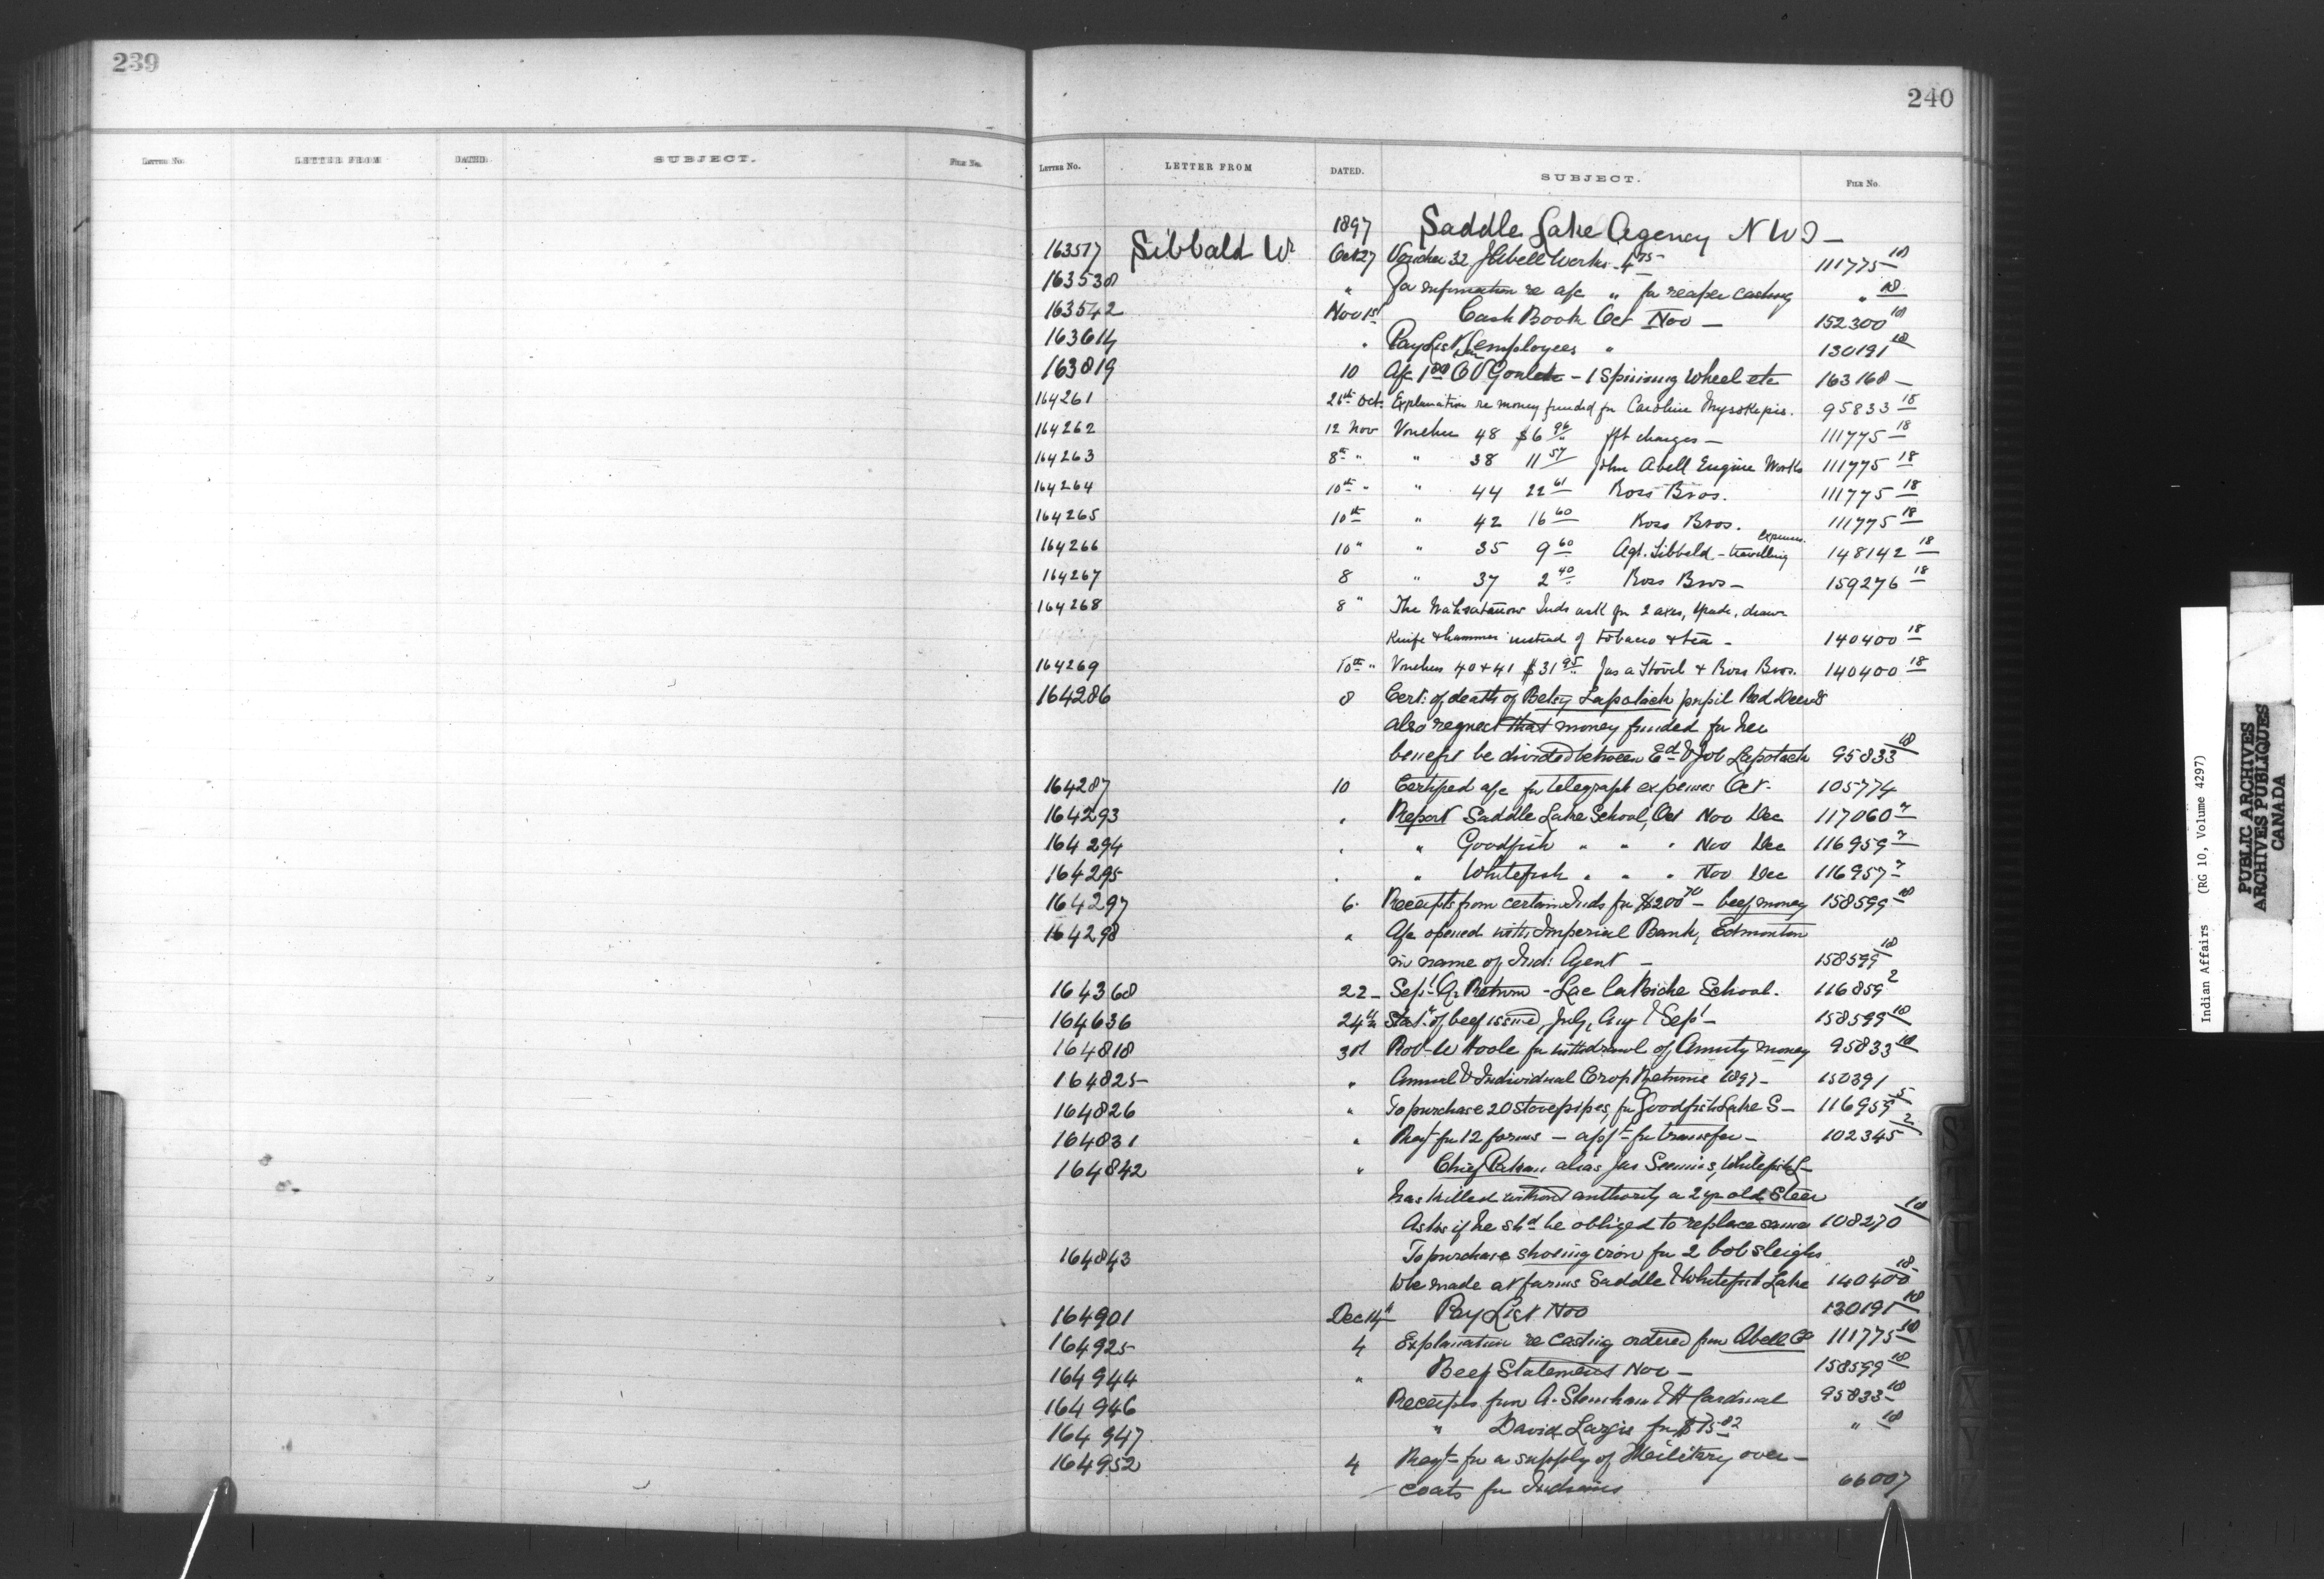 239
LETTER No. LETTER FROM DATED. SUBJECT. FILE No.
240
LETTER No. LETTER FROM DATED. SUBJECT. FILE No.
1897 Saddle Lake Agency N W T —
163517 Sibbald W. Oct 27 Voucher 32 J Abell Works 4 75 111775 18
163538 " for information re a/c " for reaper casting " 18
163542 Nov 1st Cash Book Oct Nov — 152300 18
163614 " Pay List employees " 130191 18
163819 10 A/c 1 00 — 1 Spinning Wheel etc 163168 —
164261 26th Oct. Explanation re money funded for Caroline 95833 18
164262 12 Nov Voucher 48 $6 96 frt charges — 111775 18
164263 8th " " 38 11 57 John Abell Engine Works 111775 18
164264 10th " " 44 22 61 Ross Bros. 111775 18
164265 10th " 42 16 60 Ross Bros. 111775 18
164266 10 " " 35 9 60 Agt. Sibbald - travelling expenses. 148142 18
164267 8 " 37 2 40 Ross Bros — 159276 18
164268 8 " The Wahsatanow Inds ask for 2 axes, spade, draw
knife & hammer instead of tobacco & tea — 140400 18
164269 10th " Vouchers 40 & 41 $31 95 Jas a Stovel & Ross Bros. 140400 18
164286 8 Cert: of death of Betsy Lapotack pupil Red Deer
also request that money funded for her
benefit be divided between Ed & Job Lapotack 95833 18
164287 10 Certified a/c for telegraph expenses Oct. 105774
164293 " Report Saddle Lake School, Oct Nov Dec 117060 2
164294 " " Goodfish " " " Nov Dec 116959 2
164295 " " Whitefish " " " Nov Dec 116957 2
164297 6. Receipts from certain Inds for $200 70 — beef money 158599 18
164298 " A/c opened with Imperial Bank, Edmonton
in name of Ind: Agent — 158599 18
164368 22 — Sept Qr Return - Lac la Biche School. 116859 2
164636 24th Stat: of beef issued, July, Aug & Sept — 158599 18
164818 30 Rob-W Hoole for withdrawl of Annuity money 95833 18
164825 " Annual & Individual Crop Returns 1897 — 150391
164826 " To purchase 20 stovepipes, for Goodfish Lake S — 116959 5
164831 " Reqt for 12 forms — appt for transfer — 102345 2
164842 " Chief Pakan alias Jas Seenum, Whitefish L —
has killed without authority a 2 yr old Steer
Asks if he shd be obliged to replace same 108270 18
164843 To purchase shoeing iron for 2 bob sleighs
to be made at farms Saddle & Whitefish Lake 140400 18
164901 Dec 14th Pay List Nov 130191 18
164925 4 Explanation re casting ordered from Abell Co 111775 18
164944 " Beef Statement Nov — 158599 18
164946 Receipts from A. & H Cardinal 95833 18
164947 " David for 82 " 18
164952 4 Reqt for a supply of Military over-
coats for Indians 66007
S
T
W
X
Y
Indian Affairs (RG 10, Volume 4297)
PUBLIC ARCHIVES
ARCHIVES PUBLIQUES
CANADA